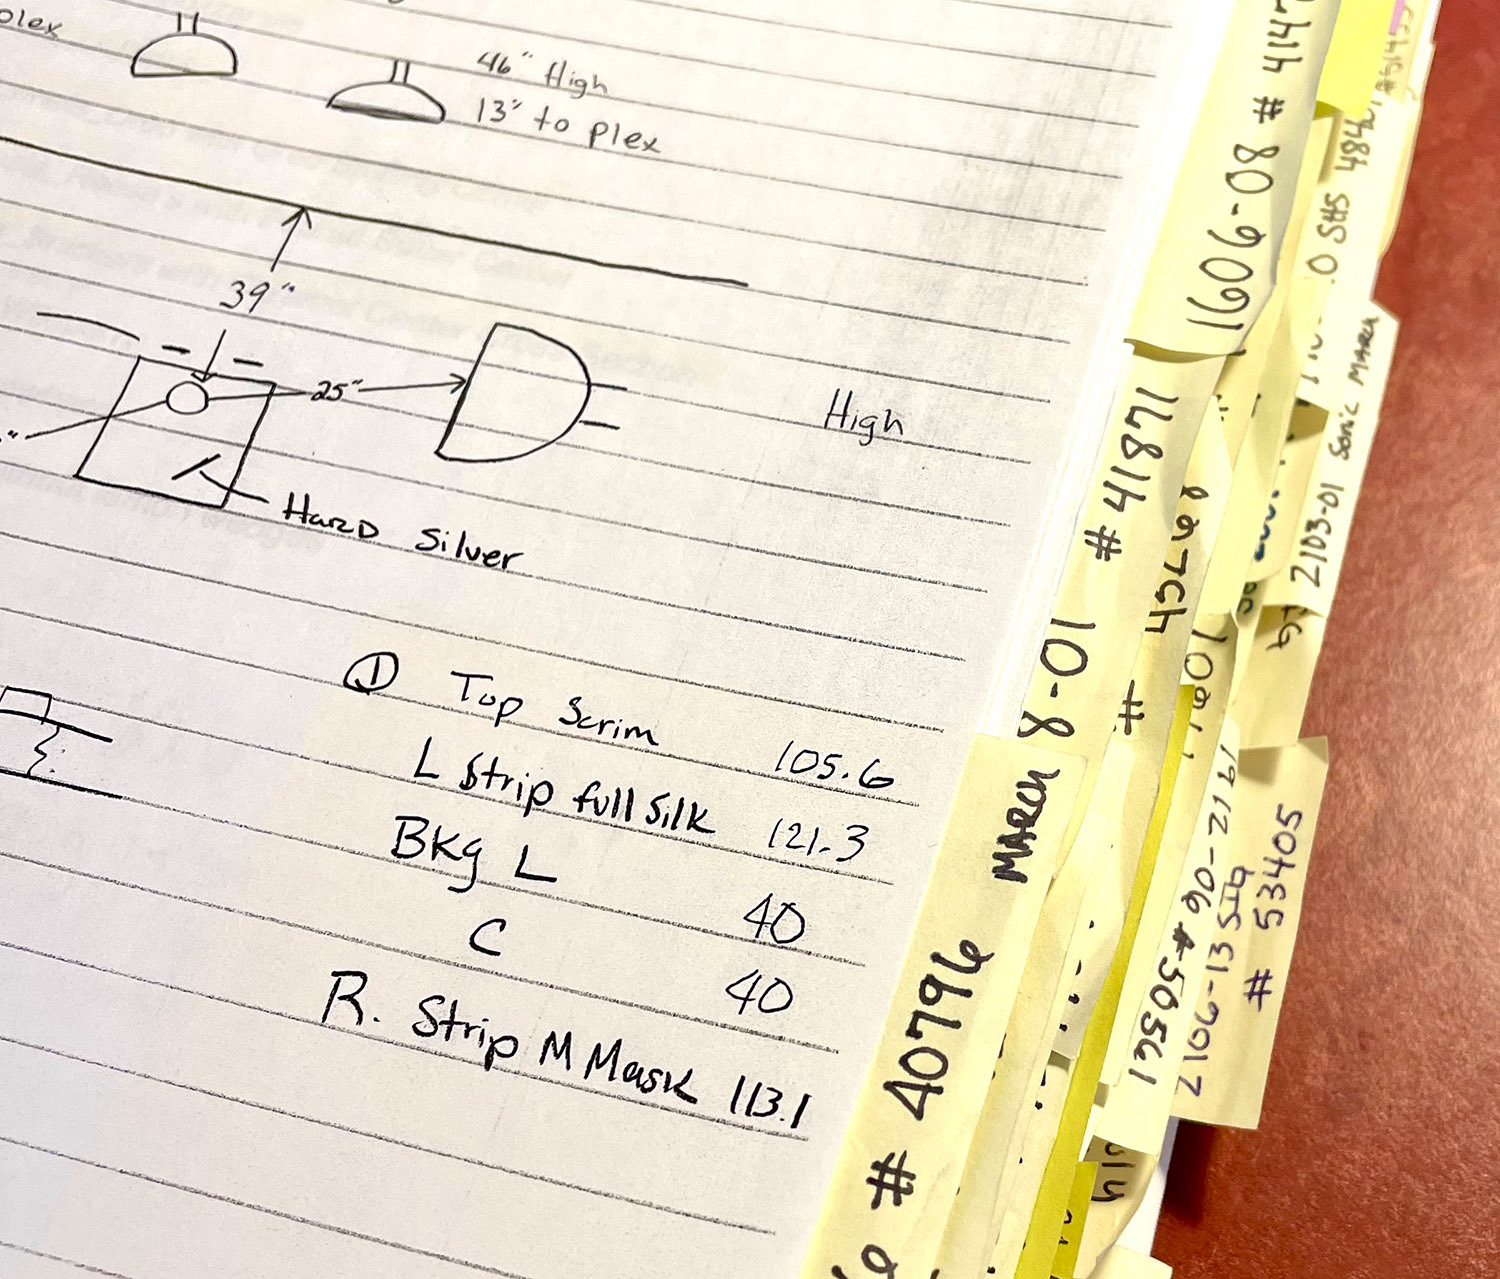 plex
46" High
13" to plex
39"
25"
High
Hard Silver
① Top Scrim 105.6
L Strip full silk 121.3
Bkg L 40
C 40
R. Strip M Mask 113.1
1606-08 # 4147
# 41871
8-01
MARCH
# 40796
#
1601
.0 SHS
2103-01 Sonic MARCH
90-2121
# 50561
2106-13 Stg
# 53405